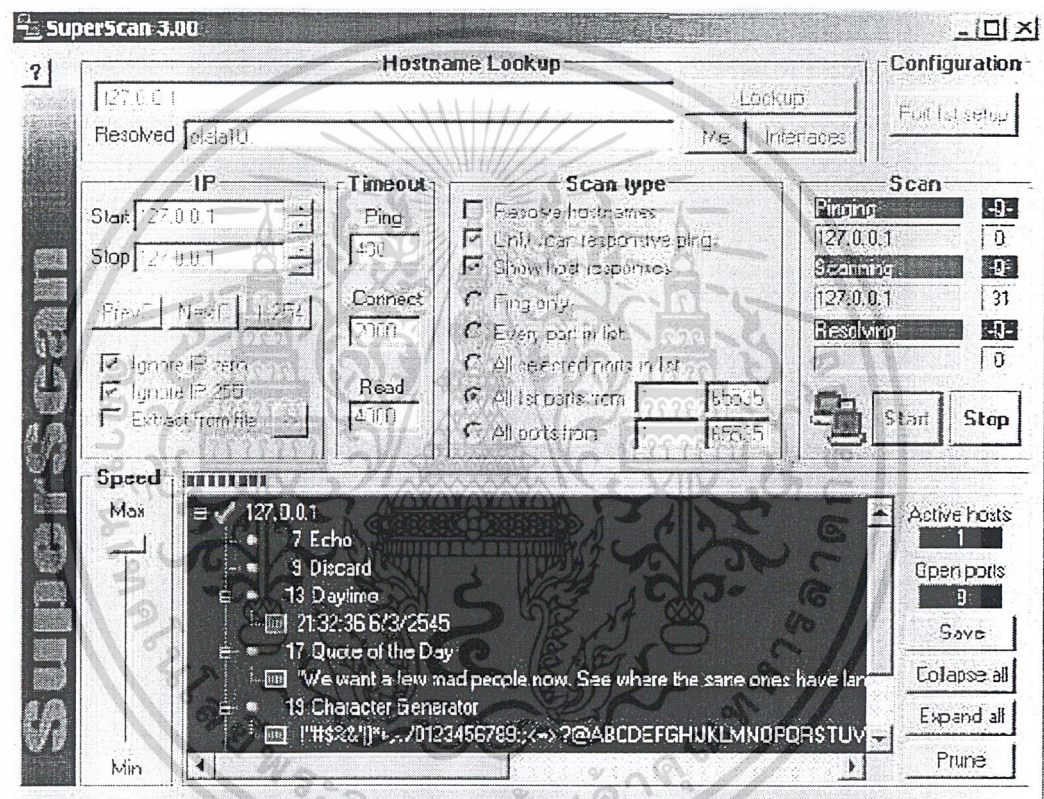 SuperScan 3.00
?
Hostname Lookup
Configuration
127.0.0.1
Lookup
Port list setup
Resolved
Me
Interfaces
IP
Start 127.0.0.1
Stop 127.0.0.1
PrevC
NextC
1..254
Ignore IP zero
Ignore IP 255
Extract from file
Timeout
Ping
400
Connect
2000
Read
4000
Scan type
Resolve hostnames
Only scan responsive pings
Show host responses
Ping only
Every port in list
All selected ports in list
All list ports from
65535
All ports from
65535
Scan
Pinging
127.0.0.1
0
Scanning
127.0.0.1
31
Resolving
0
Start
Stop
SuperScan
Speed
Max
Min
127.0.0.1
7 Echo
9 Discard
13 Daytime
21:32:36 6/3/2545
17 Quote of the Day
"We want a few mad people now. See where the sane ones have lan
19 Character Generator
Active hosts
1
Open ports
9
Save
Collapse all
Expand all
Prune